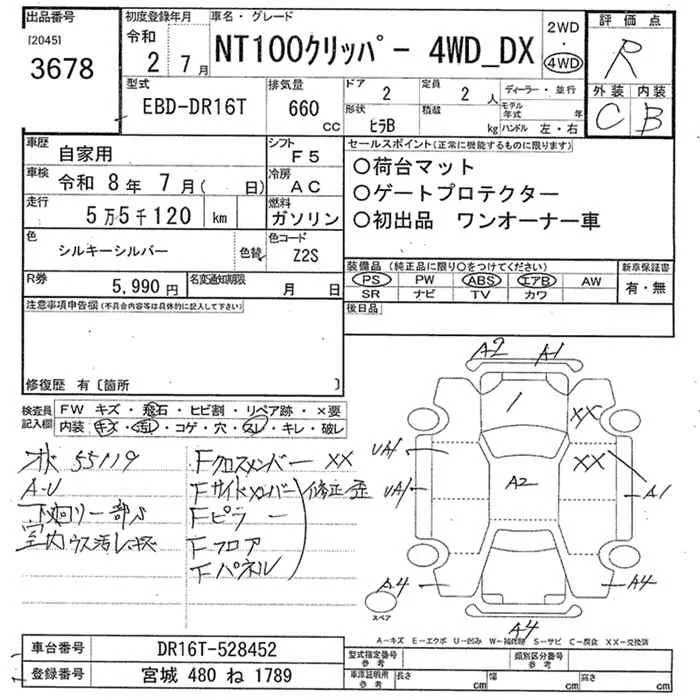 出品番号 初度登録年月 車名・グレード 評価点
[2045]
3678
令和 2 7月
NT100クリッパー 4WD_DX
2WD ・ 4WD
R
型式 排気量 ドア 定員 ディーラー・並行 外装 内装
EBD-DR16T 660 cc 2 2 人
形状 ヒラB 積載 kg モデル年式 年 ハンドル 左・右
C B
車歴 自家用 シフト F5
セールスポイント(正常に機能するものに限ります)
車検 令和 8年 7月( 日) 冷房 AC
○荷台マット
走行 5万5千120 km 燃料 ガソリン
○ゲートプロテクター
○初出品 ワンオーナー車
色 シルキーシルバー 色替 色コード Z2S
R券 5,990円 名変通知期限 月 日
装備品(純正品に限り○をつけてください) 新車保証書
PS PW ABS エアB AW 有・無
SR ナビ TV カワ
注意事項申告欄(不具合内容等は具体的に記入して下さい)
後日品
修復歴 有〔箇所 〕
検査員記入欄 FW キズ・飛石・ヒビ割・リペア跡・×要
内装 キズ・汚レ・コゲ・穴・スレ・キレ・破レ
55119 Fクロスメンバー XX
A-U Fサイドメンバー 修正・歪
下廻り一部S Fピラー
室内ウス汚レ・キズ Fフロア
Fパネル
A2 A1
XX
UA1 XX
UA1 A2 A1
A4 A4
スペア A4
A-キズ E-エクボ U-凹み W-補修跡 S-サビ C-腐食 XX-交換済
車台番号 DR16T-528452
型式指定番号 参考 類別区分番号 参考
登録番号 宮城 480 ね 1789
車庫証明用 参考 長さ cm 幅 cm 高さ cm